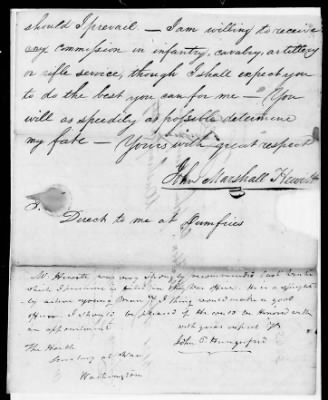 should I prevail — I am willing to receive
any commission in infantry, cavalry, artillery
or rifle service, though I shall expect you
to do the best you can for me — You
will as speedily as possible determine
my fate — Yours with great respect
John Marshall Hewitt
Direct to me at Dumfries
Mr Hewitt was very strongly recommended last winter
which I presume is in the War Office. He is a sprightly
active young Man & I think would make a good
officer. I should be pleased if he could be Honored with
an appointment
with great respect
John P Hungerford
The Honble
Secretary at War
Washington